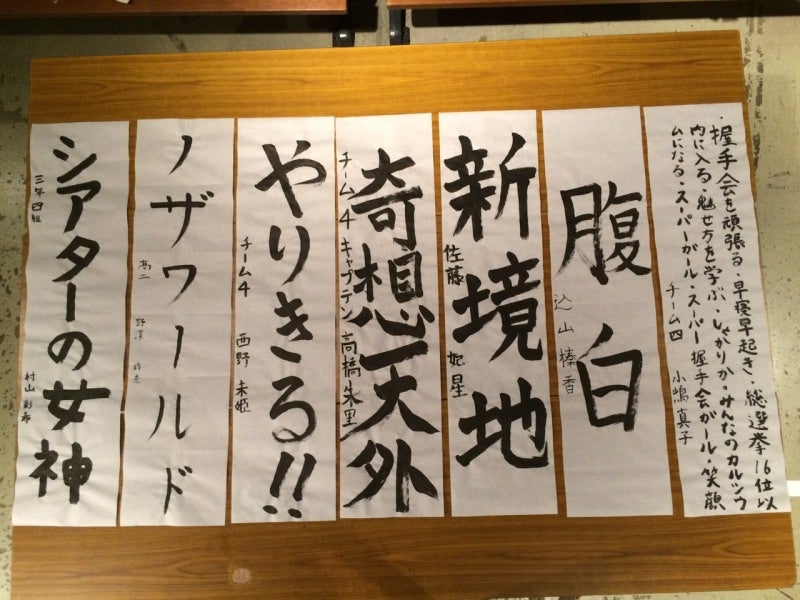 ・握手会を頑張る・早寝早起き・総選挙16位以
内に入る・魅せ方を学ぶ・しゃかりか・みんなのカルシウ
ムになる・スーパーガール・スーパー握手会ガール・笑顔
チーム四 小嶋真子
腹白
込山榛香
新境地
佐藤妃星
奇想天外
チーム4キャプテン高橋朱里
やりきる!!
チーム4 西野未姫
ノザワールド
高二 野澤玲奈
シアターの女神
三年四組 村山彩希